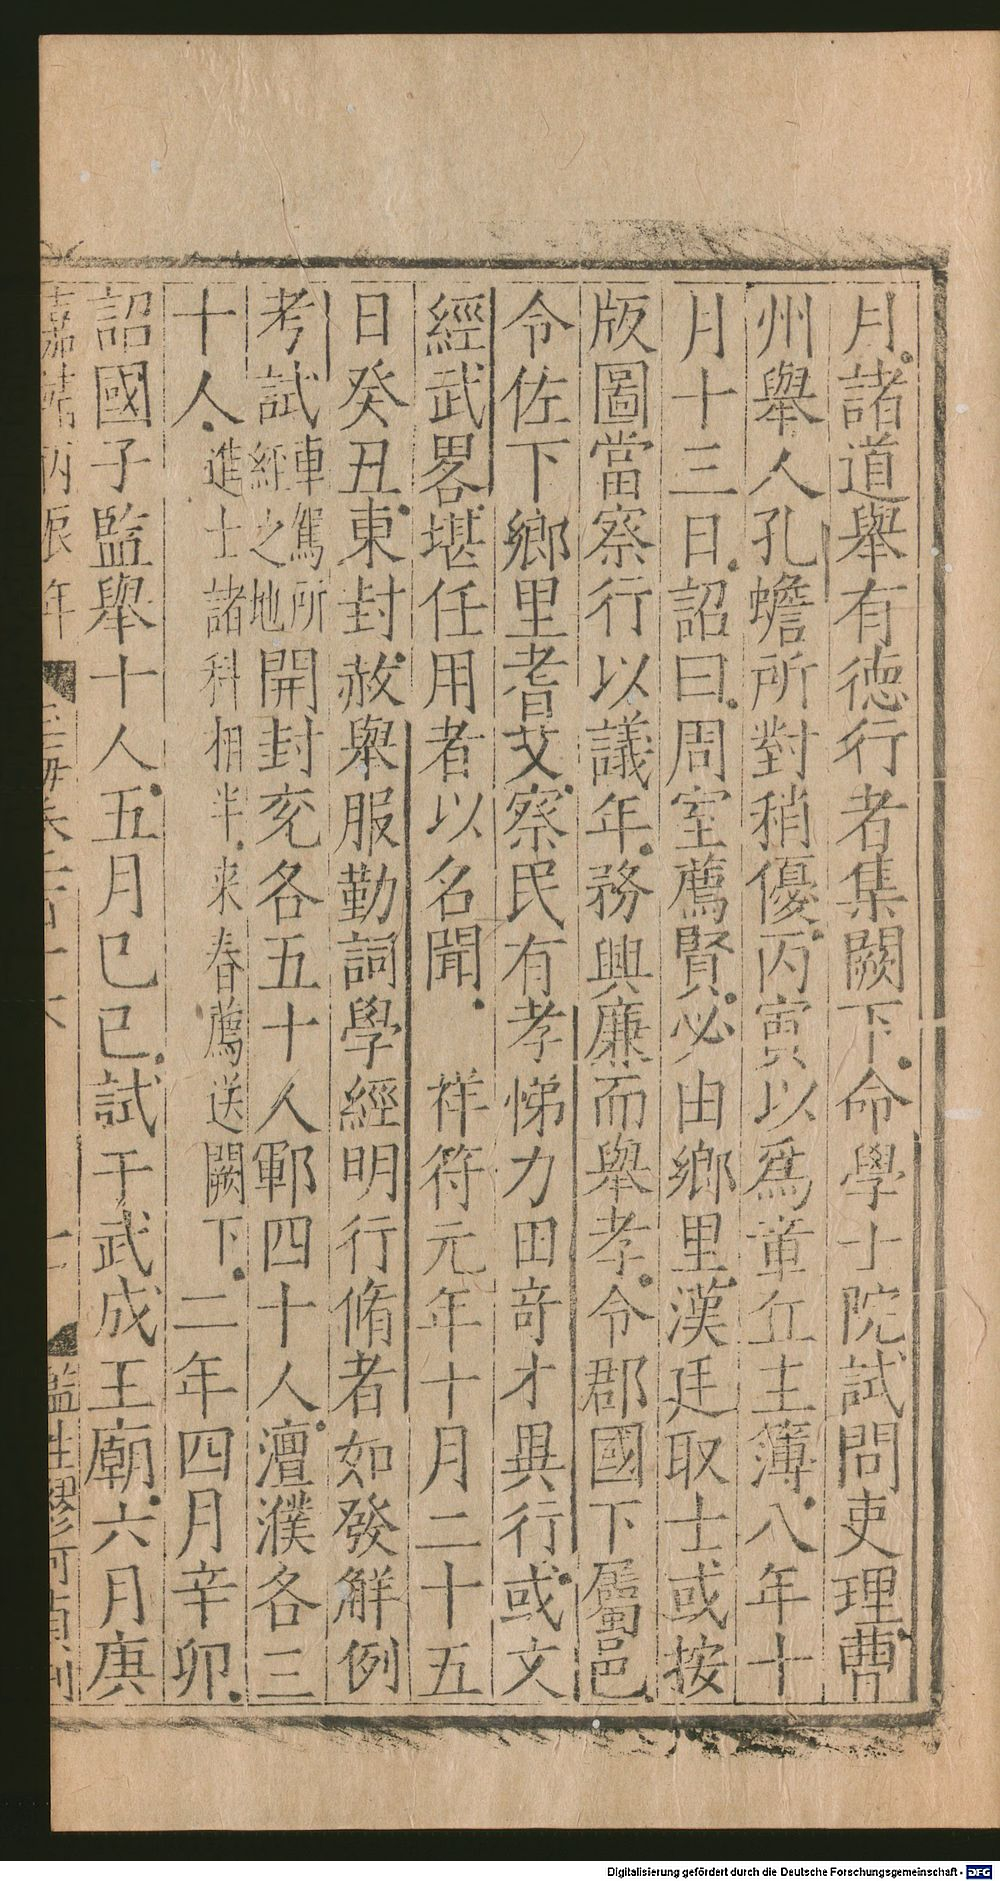 月諸道舉有德行者集闕下命學士院試問吏理曹
州舉人孔蟾所對稍優丙寅以爲章丘主簿八年十
月十三日詔曰周室薦賢必由鄉里漢廷取士或按
版圖當察行以議年務興廉而舉孝令郡國下屬邑
令佐下鄉里耆艾察民有孝悌力田竒才異行或文
經武畧堪任用者以名聞 祥符元年十月二十五
日癸丑東封赦舉服勤詞學經明行脩者如發解例
考試車駕所經之地開封兖各五十人鄆四十人澶濮各三
十人進士諸科相半来春薦送闕下 二年四月辛卯
詔國子監舉十人五月巳巳試于武成王廟六月庚
嘉靖丙辰年
監生廖